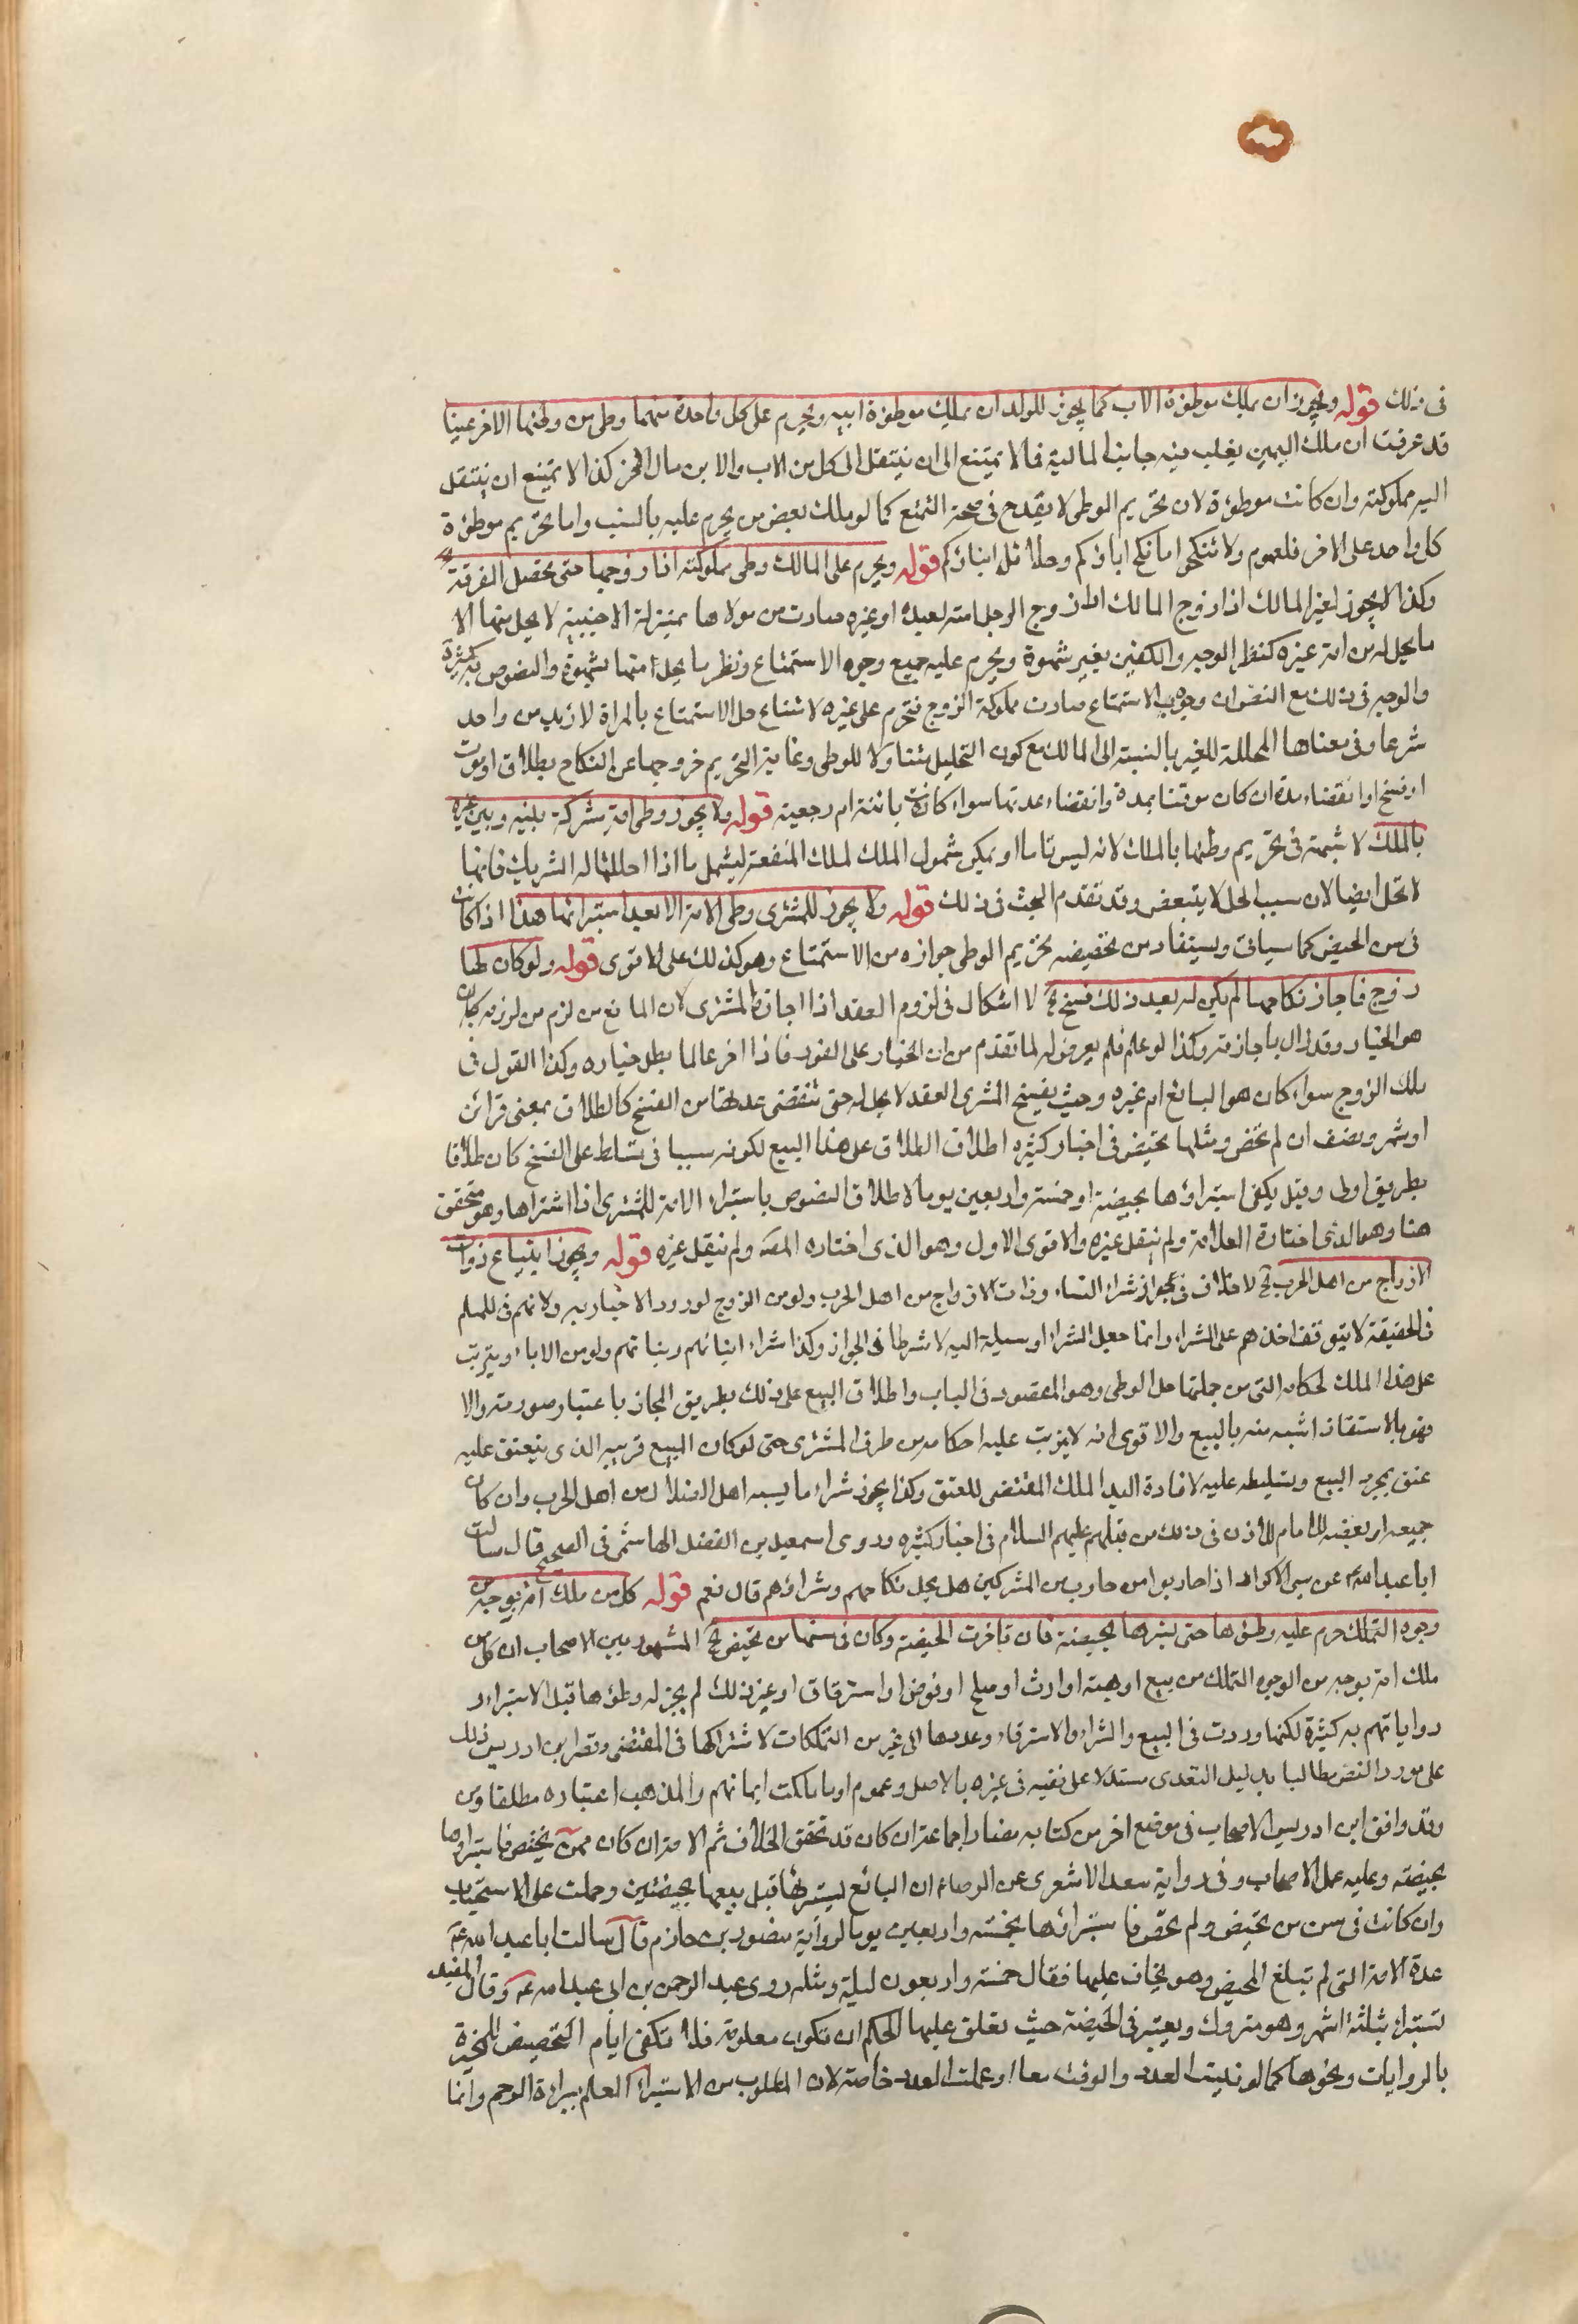 فى ذلك قوله ويجوز ان يملك موطوءة الاب كما يجوز للولد ان يملك موطوءة ابيه ويحرم على كل واحدة منهما وطى من وطئها الاخر عينا
قد عرفت ان ملك اليمين يغلب فيه جانب المالية فكما لا يمتنع الى ان ينتقل الى كل من الاب والابن مال الاخر كذا لا يمتنع ان ينتقل
اليه مملوكته وان كانت موطوءة لان تحريم الوطى لا يقدح فى صحة التمتع كما لو ملك بعض من يحرم عليه بالنسب واما تحريم موطوءة
كل واحد على الاخر فلعموم ولا تنكحوا ما نكح اباؤكم وحلائل ابنائكم قوله ويحرم على المالك وطى مملوكته اذا زوجها حتى تحصل الفرقة
وكذا لا يجوز لغير المالك اذا زوج المالك اذا زوج الرجل امته لعبده او غيره صارت من مولاها بمنزلة الاجنبية لا يحل منها الا
ما يحل له من امة غيره كنظر الوجه والكفين بغير شهوة ويحرم عليه جميع وجوه الاستمتاع ونظر ما يحل منها بشهوة والنصوص به كثيرة
والوجه فى ذلك مع النص ان وجوه الاستمتاع صارت مملوكة الزوج فتحرم على غيره لامتناع حل الاستمتاع بالمراة لازيد من واحد
شرعا وفى معناها المحللة للغير بالنسبة الى المالك مع كون التحليل متناولا للوطى وغاية التحريم خروجها عن النكاح بطلاق او موت
او فسخ او انقضاء مدة ان كان موقتا بمدة وانقضاء عدتها سواء كانت بائنة ام رجعية قوله ولا يجوز وطى امة مشركة بينه وبين غيره
بالملك لا شبهة فى تحريم وطئها بالملك لانه ليس تاما او يمكن شمول الملك لملك المنفعة ليشمل ما اذا احللها له الشريك فانها
لا تحل ايضا لان سبب الحل لا يتبعض وقد تقدم البحث فى ذلك قوله ولا يجوز للمشترى وطى الامة الا بعد استبرائها هذا اذا كانت
فى سن الحيض كما سياتى ويستفاد من تخصيصه تحريم الوطى جوازه من الاستمتاع وهو كذلك على الاقوى قوله ولو كان لها
زوج فاجاز نكاحها لم يكن له بعد ذلك فسخ الخ لا اشكال فى لزوم العقد اذا اجازه المشترى لان المانع من لزم من لزومه كان
هو الخيار وقد زال باجازته وكذا لو علم فلم يعرض له لما تقدم من ان الخيار على الفور فاذا اخر عالما بطل خياره وكذا القول فى
ملك الزوج سواء كان هو البائع ام غيره وحيث يفسخ المشترى العقد لا يحل له حتى تنقضى عدتها من الفسخ كالطلاق بمعنى قرائن
او شهر ونصف ان لم تحض ومثلها تحيض فى اخبار كثيره اطلاق الطلاق على هذا البيع لكونه سببا فى تسلط على الفسخ كان طلاقا
بطريق اولى وقيل يكفى استبراؤها بحيضة او خمسة واربعين يوما لاطلاق النصوص باستبراء الامة للمشترى اذا اشتراها وهو متحقق
هنا وهو الذى اختاره العلامة ولم ينقل غيره والاقوى الاول وهو الذى اختاره المصه ولم ينقل غيره قوله ويجوز ابتياع ذوات
الازواج من اهل الحرب الخ لا خلاف فى جواز شراء النساء ذات الازواج من اهل الحرب ولو من الزوج لورود الاخبار به ولانهم فى للمسلم
فى الحقيقة لا يتوقف اخذهم على الشراء وانما جعل الشراء وسيلة اليه لا شرطا فى الجواز وكذا شراء ابنائهم وبناتهم ولو من الاباء ويترتب
على هذا الملك احكامه التى من جملتها حل الوطى وهو المقصود فى الباب واطلاق البيع على ذلك بطريق المجاز باعتبار صورته والا
فهو بالاستنقاذ اشبه منه بالبيع والاقوى انه لا يترتب عليه احكامه من طرف المشترى حتى لو كان المبيع قريبه الذى ينعتق عليه
عتق بمجرد البيع وتسليطه عليه لافادة اليد الملك المقتضى للعتق وكذا يجوز شراء ما يسبيه اهل الضلال من اهل الحرب وان كان
جميعه او بعضه للامام للاذن فى ذلك من قبلهم عليهم السلام فى اخبار كثيره وروى اسمعيل بن الفضل الهاشمى فى الصحيح قال سالت
ابا عبد الله ع عن سبى الاكراد اذا حاربوا من حارب من المشركين هل يحل نكاحهم وشراؤهم قال نعم قوله كل من ملك امة بوجه من
وجوه التملك حرم عليه وطئها حتى يستبرئها بحيضة فان تاخرت الحيضة وكان فى سنها من تحيض الخ المشهور بين الاصحاب ان كل من
ملك امة بوجه من الوجوه التملك من بيع او هبة او ارث او صلح او قرض او استرقاق او غير ذلك لم يجز له وطؤها قبل الاستبراء و
رواياتهم به كثيرة لكنها وردت فى البيع والشراء والاسترقاء وعدوها الى غير من التملكات لاشتراكها فى المقتضى وقصر ابن ادريس ذلك
على مورد النص مطالبا بدليل التعدى مستدلا على نفيه فى غيره بالاصل وعموم او ما ملكت ايمانهم والمذهب اعتباره مطلقا ومن
وقد وافق ابن ادريس الاصحاب فى موضع اخر من كتابه فصار اجماعا ان كان قد تحقق الخلاف ثم الامة ان كان ممن يحيض فاستبراؤها
بحيضة وعليه عمل الاصحاب وفى رواية سعد الاشعرى عن الرضا ع ان البائع ليستبرئها قبل بيعها بحيضتين وحملت على الاستحباب
وان كانت فى سن من تحيض ولم تحض فاستبراؤها بخمسة واربعين يوما لرواية منصور بن حازم قال سالت ابا عبد الله ع عن
عدة الامة التى لم تبلغ المحيض وهو يخاف عليها فقال خمسة واربعون ليلة ومثله روى عبد الرحمن بن ابى عبد الله عنه وقال المفيد
تستبراء بثلثة اشهر وهو متروك ويعتبر فى الحيضة حيث تعلق عليها الحكم ان تكون معلومة فلا تكفى ايام التحيض المخيرة
بالروايات ونحوها كما لو نسيت العدد والوقت معا او علمت العدد خاصة لان المطلوب من الاستبراء العلم ببراءة الرحم وانما